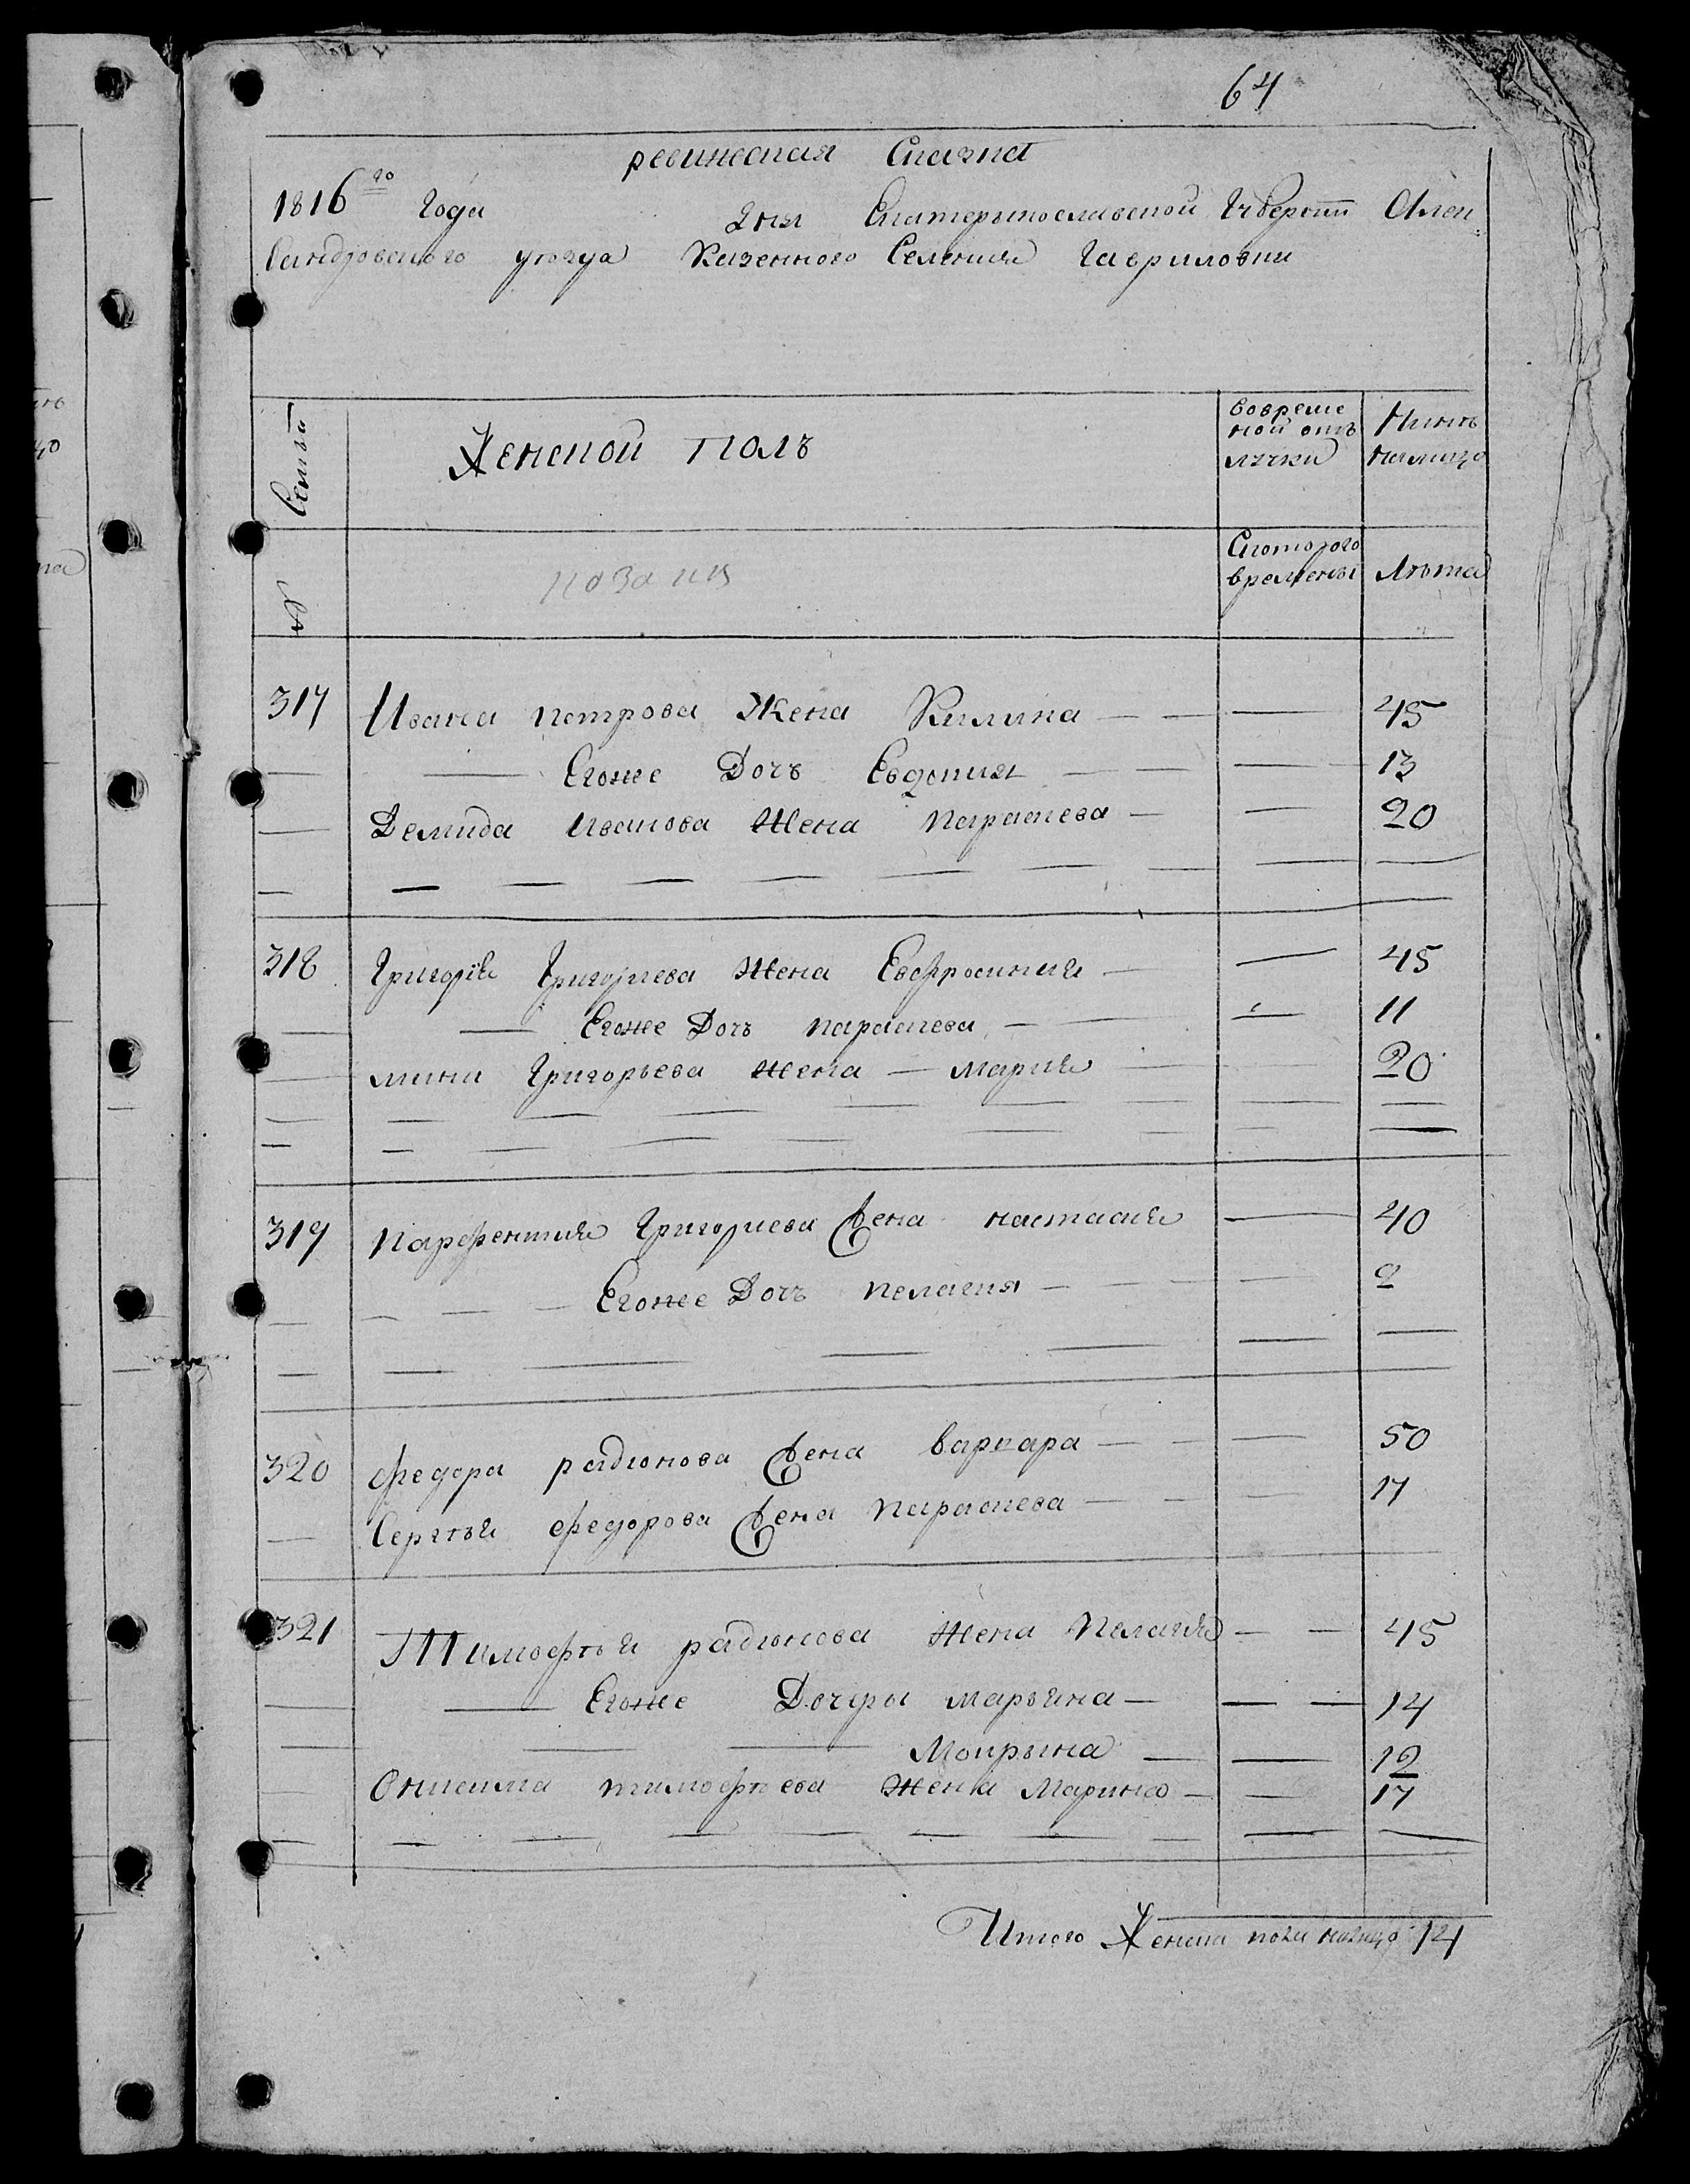 64
ревижская Сказка
1816го Года Дня Екатерынославской Губерни Алек
сандровского уезда Казенного Селения Гавриловки
Семьи
Женской полъ
вовреме
ной отъ
лучки
Нынъ
налицо
№
козаки
Скоторого
времены
Лѣта
317 Ивана петрова Жена Килина — — — 45
— — Егоже Дочь Евдокия — — — 13
— Демида Иванова Жена параскева — — 20
318 Григорія Григориева жена Евфросиния — — 45
— — Егоже Дочь параскева — — — 11
— мини Григорьева жена — Мария — — 20
319 парфентия Григориева жена настасия — 40
— — — Егоже Дочь пелагия — — — 2
320 федора радионова жена варвара — — — 50
— Сергѣя федорова жена параскева — — — 17
321 Тимофѣя радионова жена пелагия — — 45
— — Егоже Дочеры марьяна — — — 14
— — — Мокрына — — 12
— Онисима тимофѣева жена Марина — — 17
Итого Женска пола налицо 14